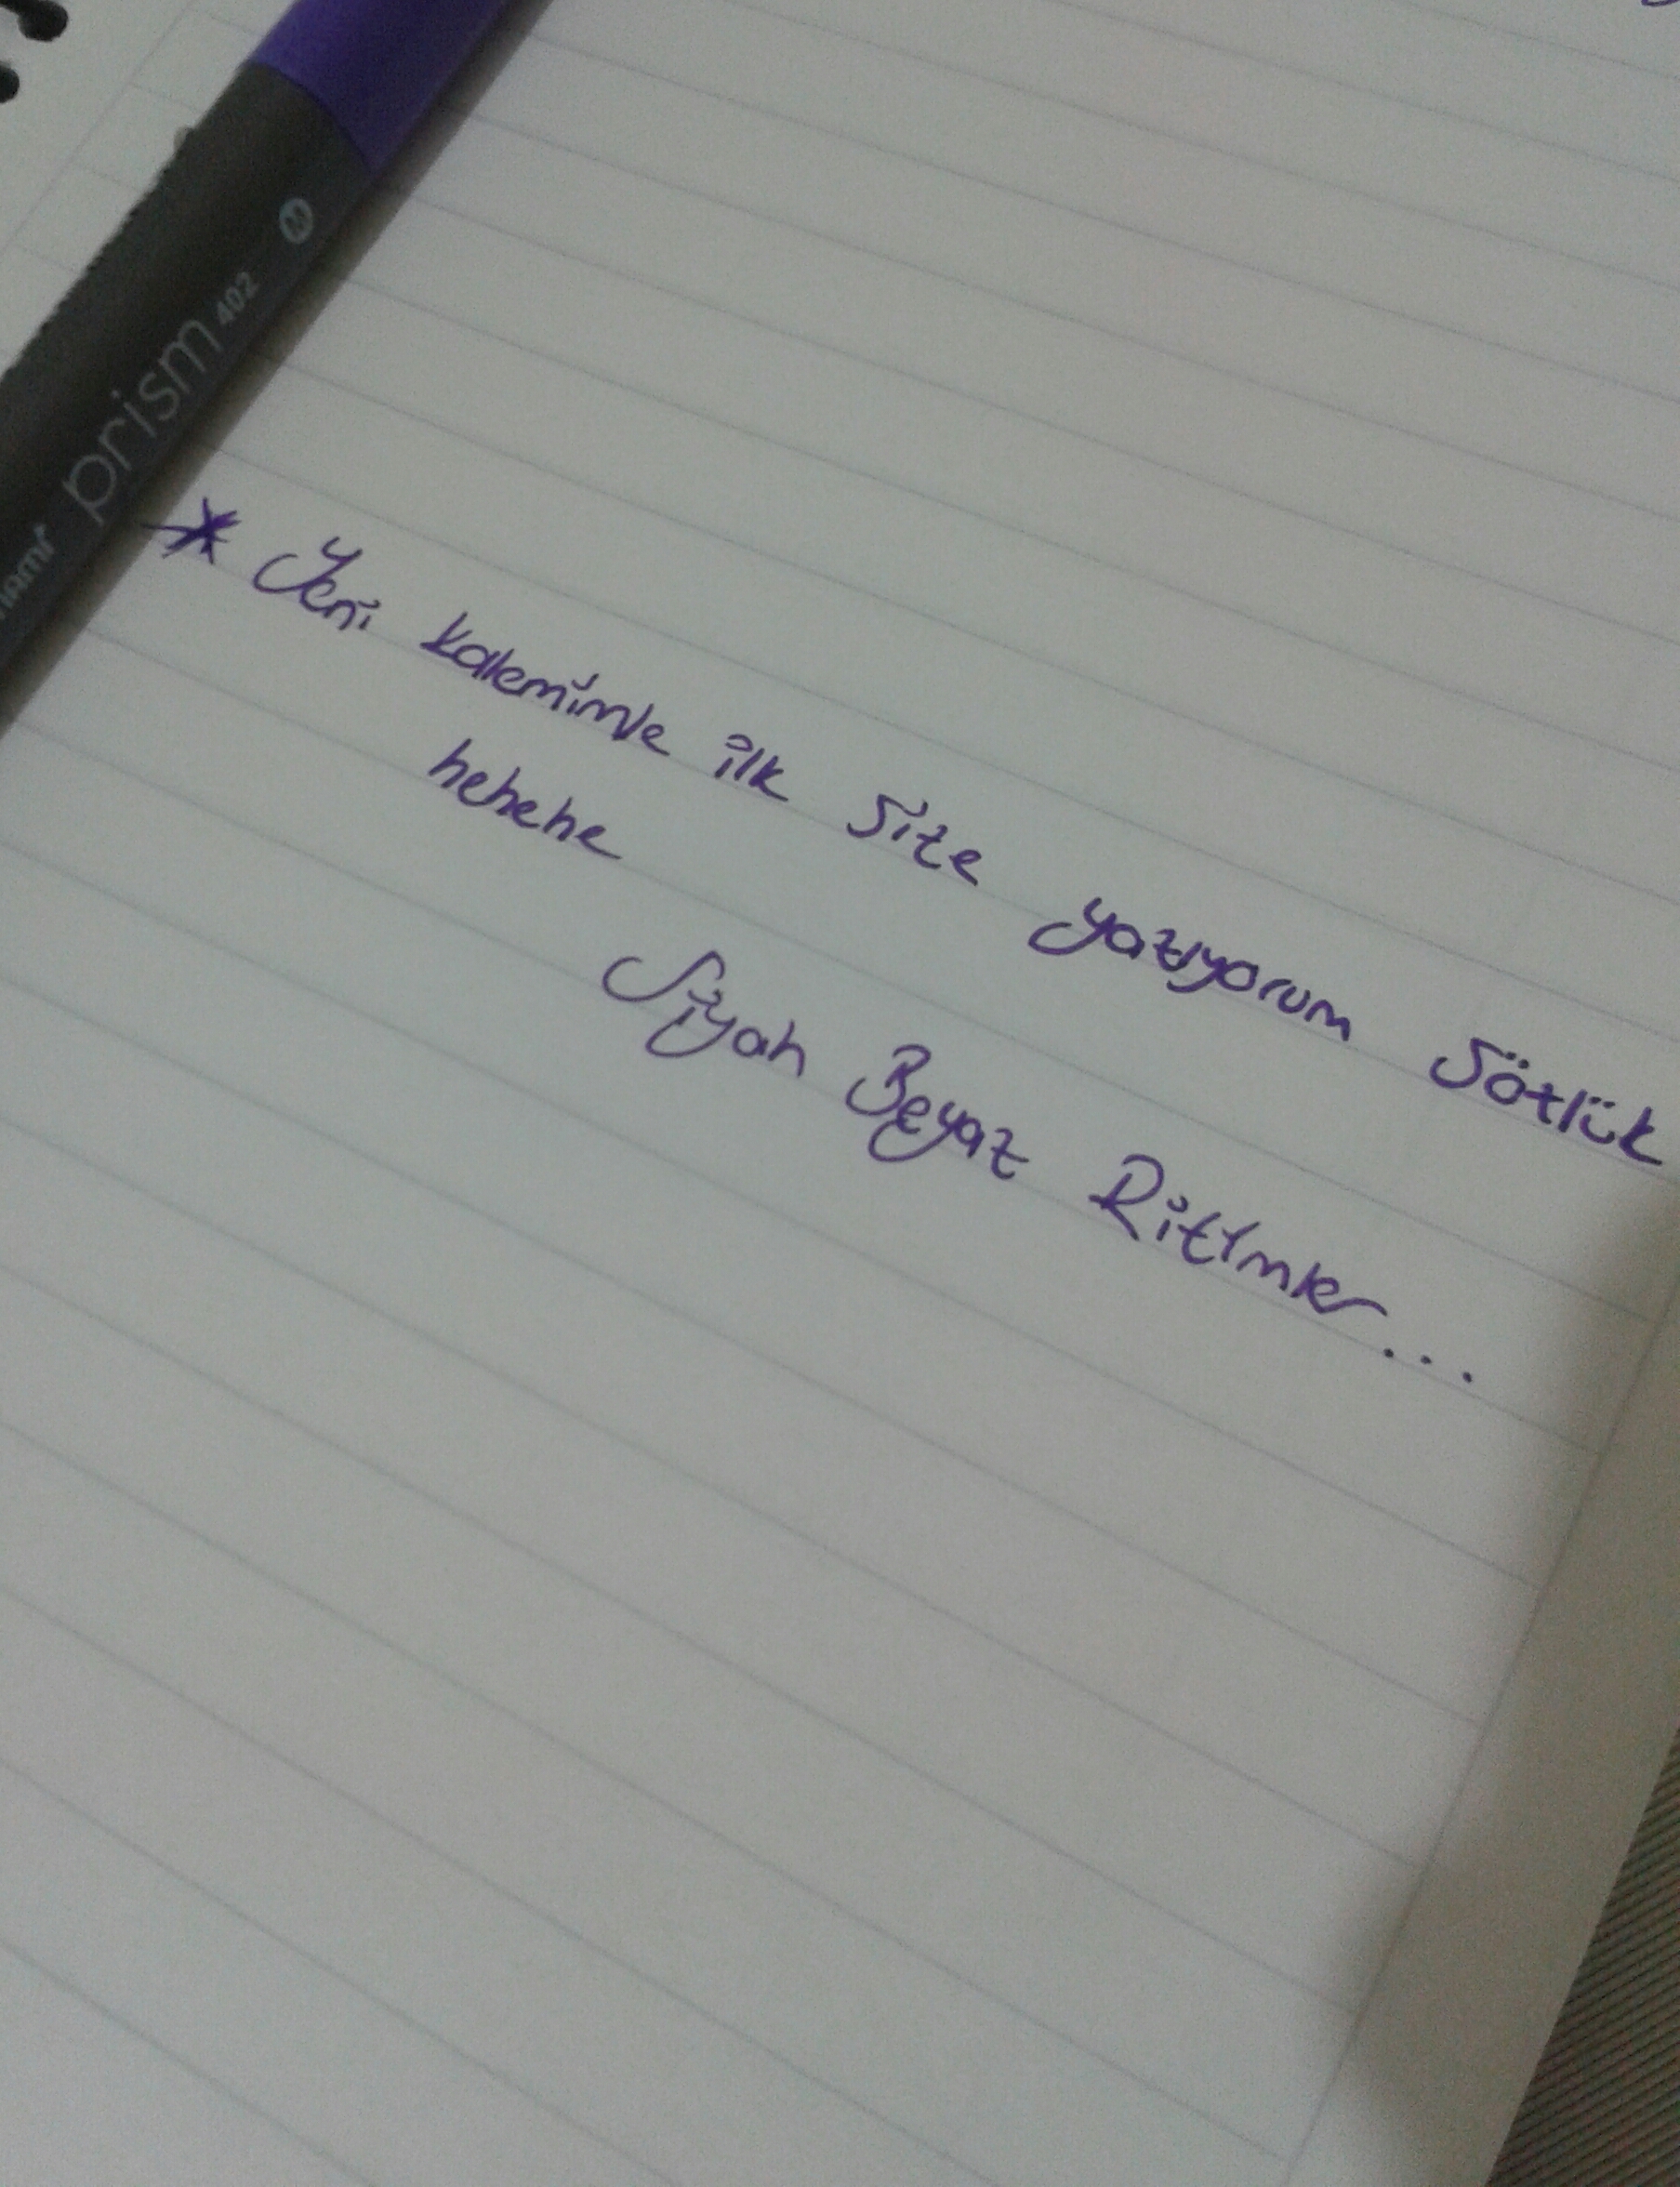 prism 402 M
* Yeni kalemimle ilk size yazıyorum Sözlük
hehehe
Siyah Beyaz Ritimler...